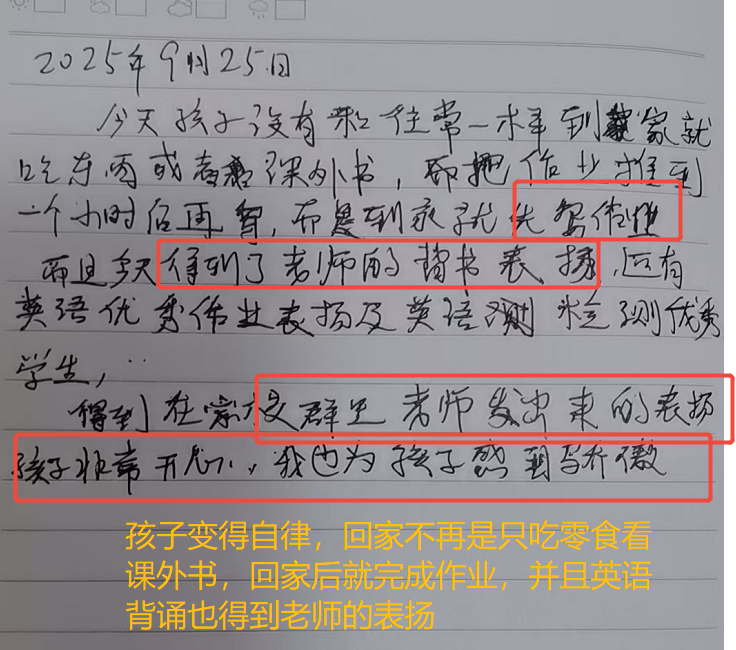 2025年9月25日
今天孩子没有和往常一样到家就
吃东西或者看课外书，而把作业推到
一个小时后再写，而是到家就先写作业
而且今天得到了老师的背书表扬，还有
英语优秀作业表扬及英语测检测优秀
学生，
得到在家校群里老师发出来的表扬
孩子非常开心，我也为孩子感到骄傲
孩子变得自律，回家不再是只吃零食看
课外书，回家后就完成作业，并且英语
背诵也得到老师的表扬